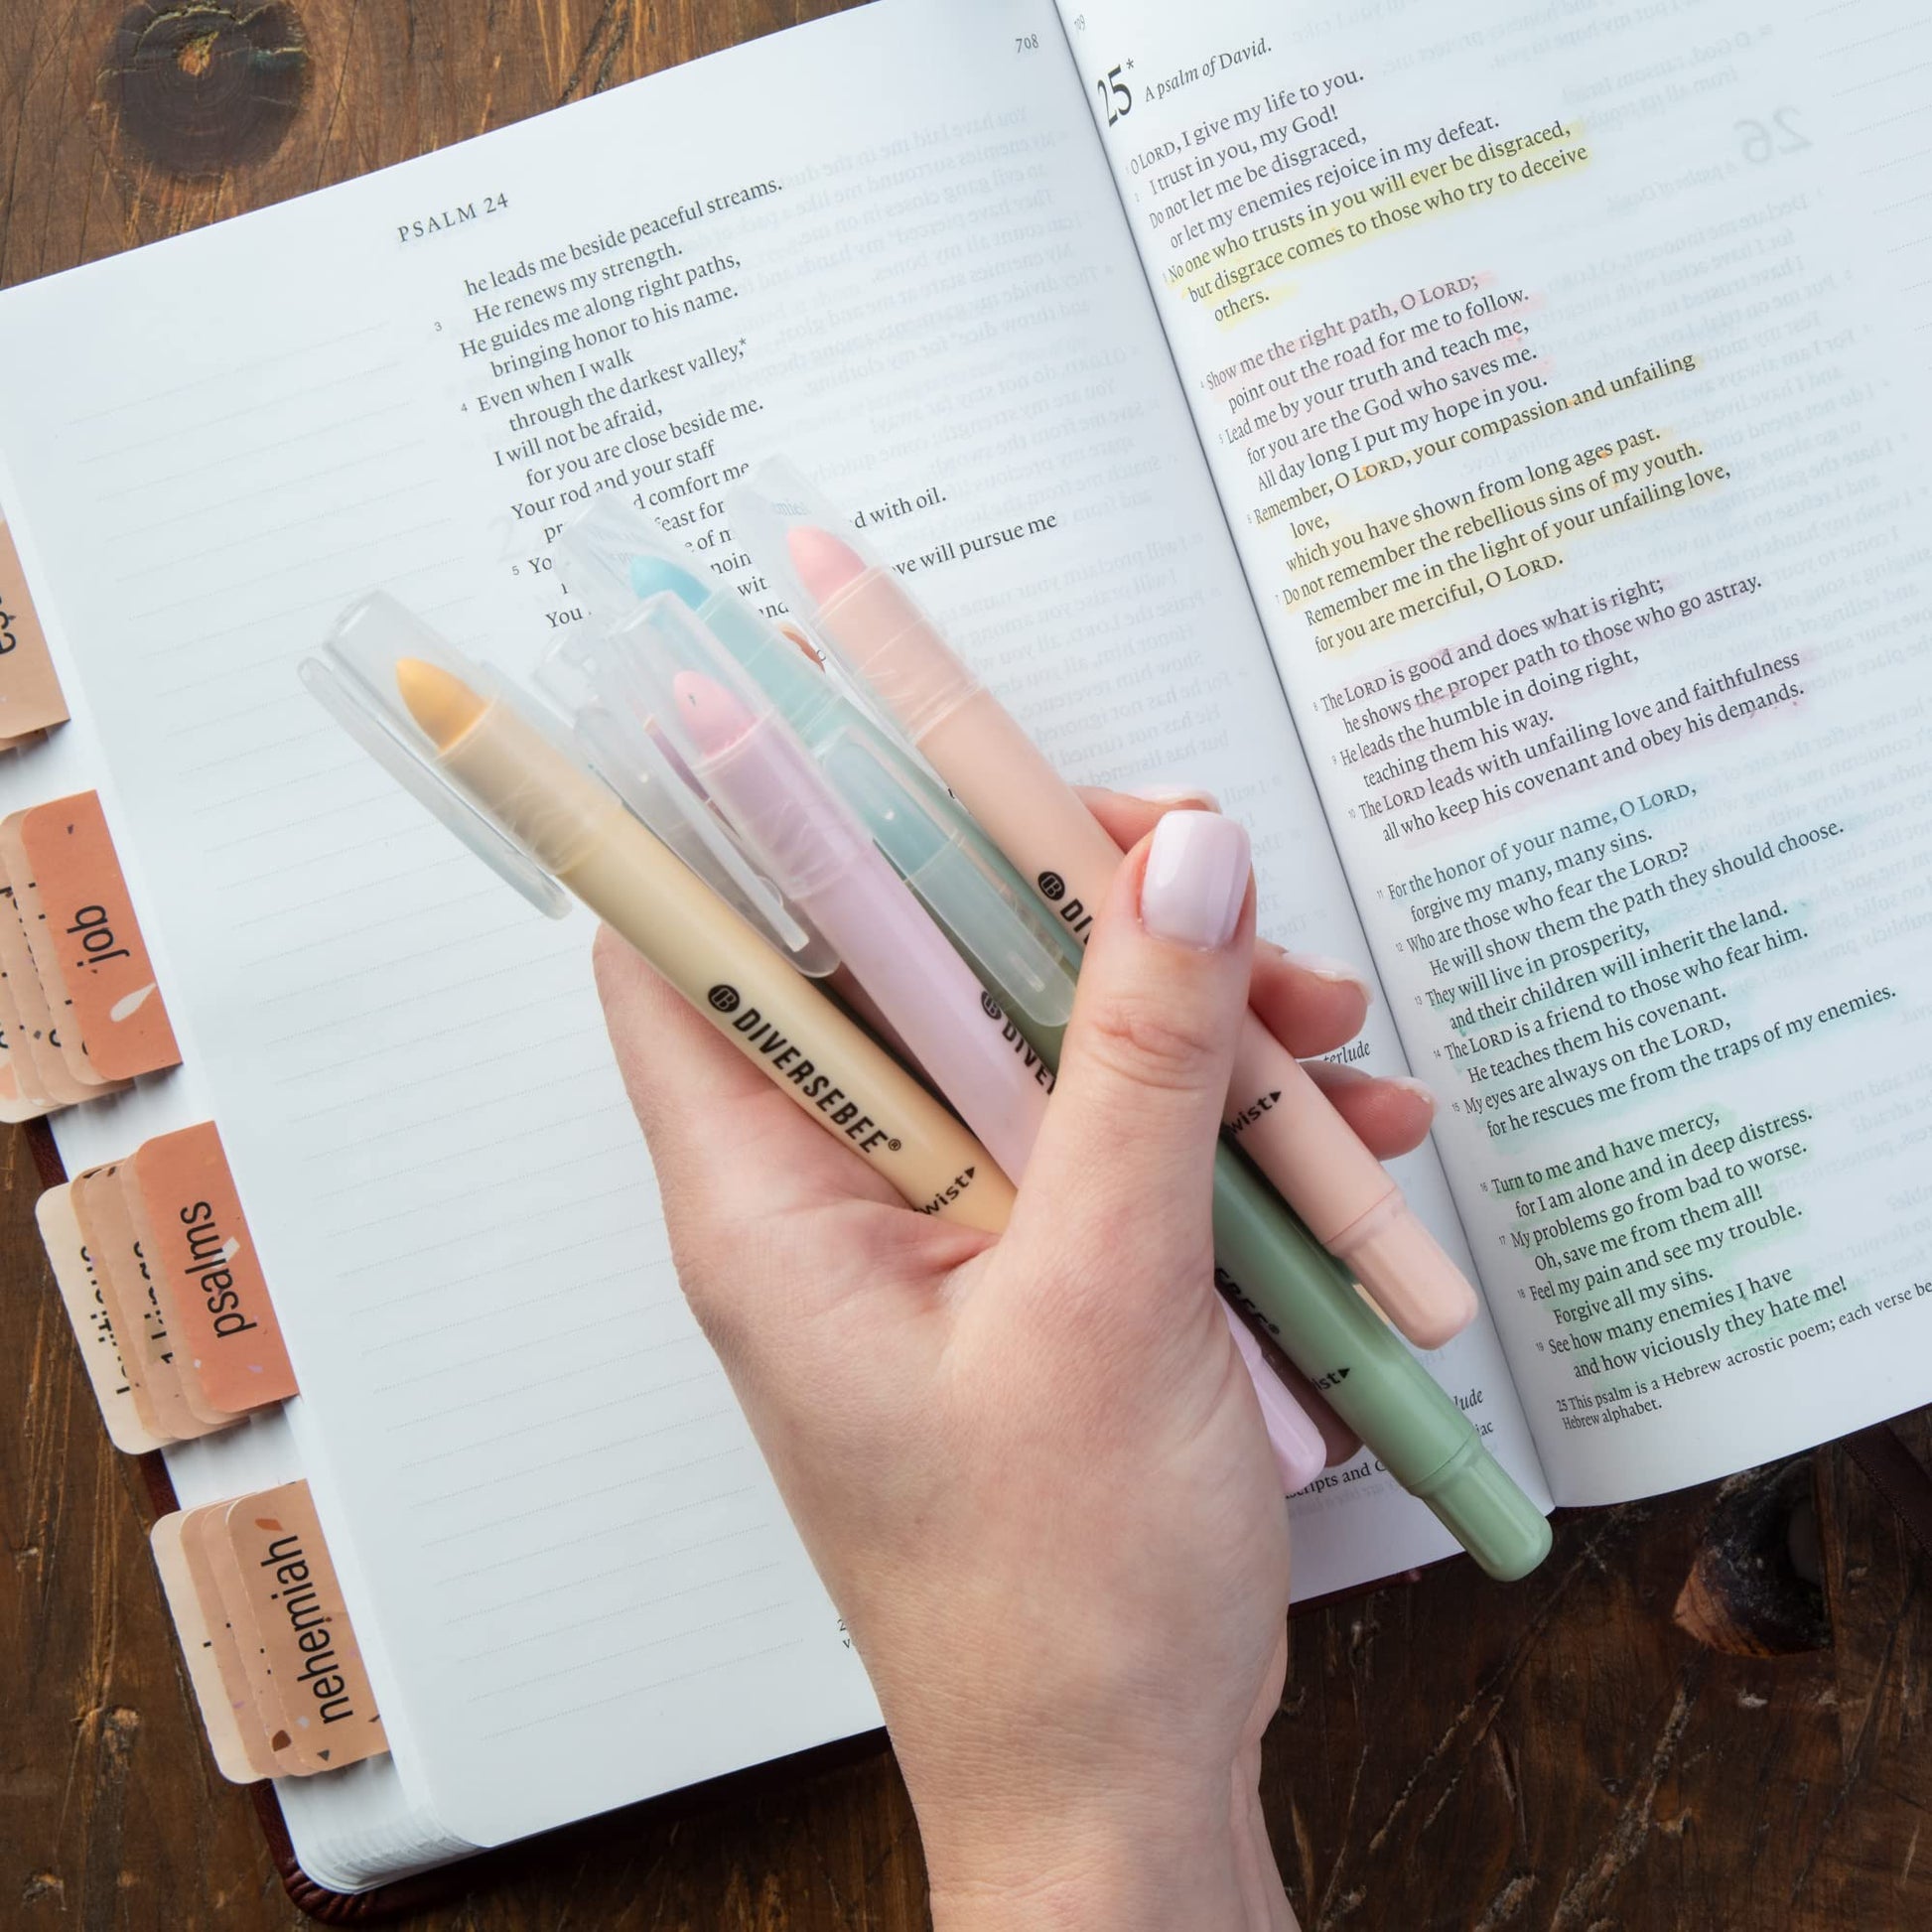 PSALM 24
708
he leads me beside peaceful streams.
3 He renews my strength.
He guides me along right paths,
bringing honor to his name.
4 Even when I walk
through the darkest valley,*
I will not be afraid,
for you are close beside me.
Your rod and your staff
comfort me
5
feast for
of
You
with oil.
will pursue me
terlude
709
25*
A psalm of David.
1 O LORD, I give my life to you.
2 I trust in you, my God!
Do not let me be disgraced,
or let my enemies rejoice in my defeat.
3 No one who trusts in you will ever be disgraced,
but disgrace comes to those who try to deceive
others.
4 Show me the right path, O LORD;
point out the road for me to follow.
5 Lead me by your truth and teach me,
for you are the God who saves me.
All day long I put my hope in you.
6 Remember, O LORD, your compassion and unfailing
love,
which you have shown from long ages past.
7 Do not remember the rebellious sins of my youth.
Remember me in the light of your unfailing love,
for you are merciful, O LORD.
8 The LORD is good and does what is right;
he shows the proper path to those who go astray.
9 He leads the humble in doing right,
teaching them his way.
10 The LORD leads with unfailing love and faithfulness
all who keep his covenant and obey his demands.
11 For the honor of your name, O LORD,
forgive my many, many sins.
12 Who are those who fear the LORD?
He will show them the path they should choose.
13 They will live in prosperity,
and their children will inherit the land.
14 The LORD is a friend to those who fear him.
He teaches them his covenant.
15 My eyes are always on the LORD,
for he rescues me from the traps of my enemies.
16 Turn to me and have mercy,
for I am alone and in deep distress.
17 My problems go from bad to worse.
Oh, save me from them all!
18 Feel my pain and see my trouble.
Forgive all my sins.
19 See how many enemies I have
and how viciously they hate me!
25 This psalm is a Hebrew acrostic poem; each verse be
Hebrew alphabet.
job
psalms
nehemiah
DIVERSEBEE®
twist